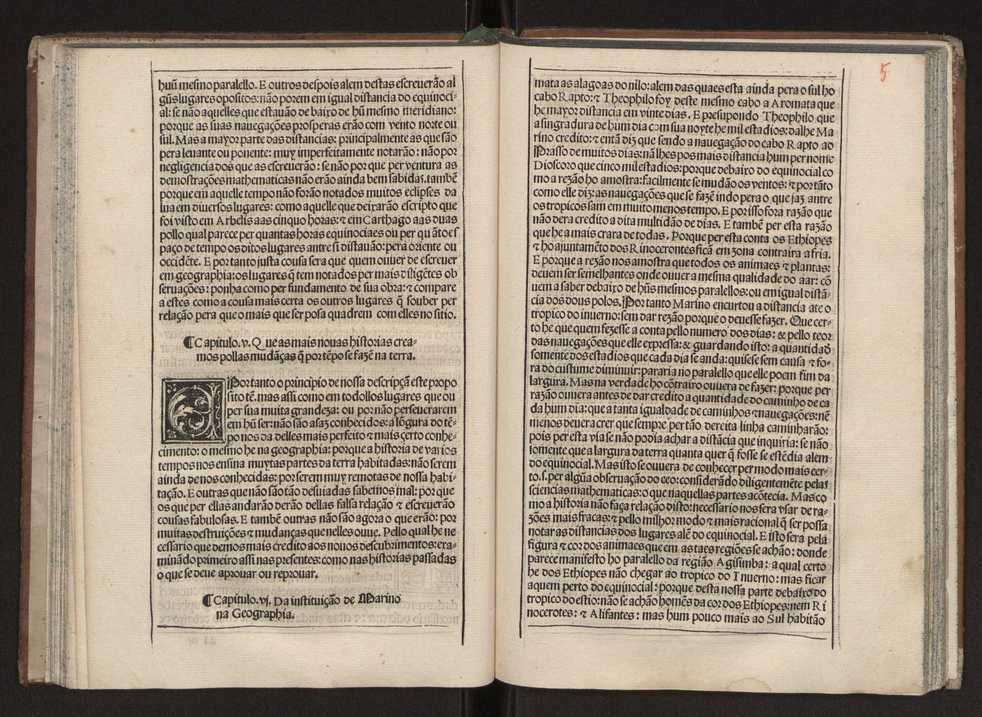 huũ mesmo parallelo. E outros despois alem destas escreuerão al
gũs lugares opositos: não porem em igual distancia do equinoci-
al: se não aquelles que estauão de baixo de hũ mesmo meridiano:
porque as suas nauegações prosperas erão com vento norte ou
sul. Mas a mayor parte das distancias: principalmente as que são
pera leuante ou ponente: muy imperfeitamente notarão: não por
negligencia dos que as escreuerão: se não por que per ventura as
demostrações mathematicas não erão ainda bem sabidas. tambẽ
porque em aquelle tempo não forão notados muitos eclipses da
lua em diuersos lugares: como aquelle que deixarão escripto que
foi visto em Arbelis aas cinquo horas: ⁊ em Carthago aas duas
pollo qual parece per quantas horas equinociaes ou per quãto es
paço de tempo os ditos lugares antre si distauão: pera oriente ou
occidẽte. E por tanto justa cousa sera que quem ouuer de escreuer
em geographia: os lugares q̃ tem notados per mais diligẽtes ob
seruações: ponha como per fundamento de sua obra: ⁊ compare
a estes como a cousa mais certa os outros lugares q̃ souber per
relação pera que o mais que ser posa quadrem com elles no sitio.
¶ Capitulo. v. Que as mais nouas historias crea-
mos pollas mudãças q̃ por tẽpo se fazẽ na terra.
POr tanto o principio de nossa descripçã este propo
sito tẽ. mas assi como em todollos lugares que ou
per sua muita grandeza: ou por: não perseuerarem
em hũ ser: não são asaz conhecidos: a lõgura do tẽ-
po nos da delles mais perfeito ⁊ mais çerto conhe-
cimento: o mesmo he na geographia: porque a historia de varios
tempos nos ensina muytas partes da terra habitadas: não serem
ainda de nos conhecidas: por serem muy remotas de nossa habi-
tação. E outras que não são tão desuiadas sabemos mal: por que
os que per ellas andarão derão dellas falsa relação ⁊ escreuerão
cousas fabulosas. E tambẽ outras não são agora o que erão: por
muitas destruições ⁊ mudanças que nelles ouue. Pello qual he ne
cessario que demos mais credito aos nouos descubrimentos: exa-
minãdo primeiro assi nas presentes: como nas historias passadas
o que se deue aprouar ou reprouar.
¶ Capitulo. vj. Da instituição de Marino
na Geographia.
5
mata as alagoas do nilo: alem das quaes esta ainda pera o sul ho
cabo Rapto: ⁊ Theophilo foy deste mesmo cabo a Aromata que
he mayor distancia em vinte dias. E presupondo Theophilo que
a singradura de hum dia com sua noyte he mil estadios: dalhe Ma
rino credito: ⁊ entã diz que sendo a nauegação do cabo Rapto ao
Prasso de muitos dias: nã lhes pos mais distancia hum per nome
Dioscoro que cinco mil estadios: porque debaixo do equinocial co
mo a rezão ho amostra: facilmente se mudão os ventos: ⁊ por tãto
como elle diz: as nauegações que se fazẽ indo pera o que jaz antre
os tropicos sam em muito menos tempo. E por isso fora razão que
não dera credito a dita multidão de dias. E tambẽ per esta razão
que he a mais crara de todas. Porque per esta conta os Ethiopes
⁊ ho ajuntamẽto dos Rinocerontes ficã em zona contraira a fria.
E porque a rezão nos amostra que todos os animaes ⁊ plantas:
deuem ser semelhantes onde ouuer a mesma qualidade do aar: cõ
uem a saber debaixo de hũs mesmos parallelos: ou em igual distã-
cia dos dous polos. Por tanto Marino encurtou a distancia ate o
tropico do inuerno: sem dar rezão porque o deuesse fazer. Que cer-
to he que quem fezesse a conta pello numero dos dias: ⁊ pello teor
das nauegações que elle expressa: ⁊ guardando isto: a quantidadõ
somente dos estadios que cada dia se anda: quisese sem causa ⁊ fo-
ra do custume diminuir: pararia no parallelo que elle poem fim da
largura. Mas na verdade ho cõtrairo ouuera de fazer: porque per
razão ouuera antes de dar credito a quantidade do caminho de ca
da hum dia: que a tanta igualdade de caminhos ⁊ nauegações: nẽ
menos deuera crer que sempre per tão dereita linha caminharão:
pois per esta via se não podia achar a distãcia que inquiria: se não
somente que a largura da terra quanta quer q̃ fosse se estẽdia alem
do equinocial. Mas isto se ouuera de conhecer per modo mais cer-
to. s. per algũa obseruação do ceo: considerãdo diligentemẽte pelas
sciencias mathematicas: o que naquellas partes acõtecia. Mas co
mo a historia não faça relação disto: necessario nos sera vsar de ra-
zões mais fracas: ⁊ pello milhor modo ⁊ mais racional q̃ ser possa
notar as distancias dos lugares alẽ do equinocial. E isto sera pela
figura ⁊ cor dos animaes que em as taes regiões se achão: donde
parece manifesto ho parallelo da região Agisimba: a qual certo
he dos Ethiopes não chegar ao tropico do Inuerno: mas ficar
aquem perto do equinocial: porque desta nossa parte debaixo do
tropico do estio: não se achão homẽs da cor dos Ethiopes: nem Ri
nocerotes: ⁊ Alifantes: mas hum pouco mais ao Sul habitão